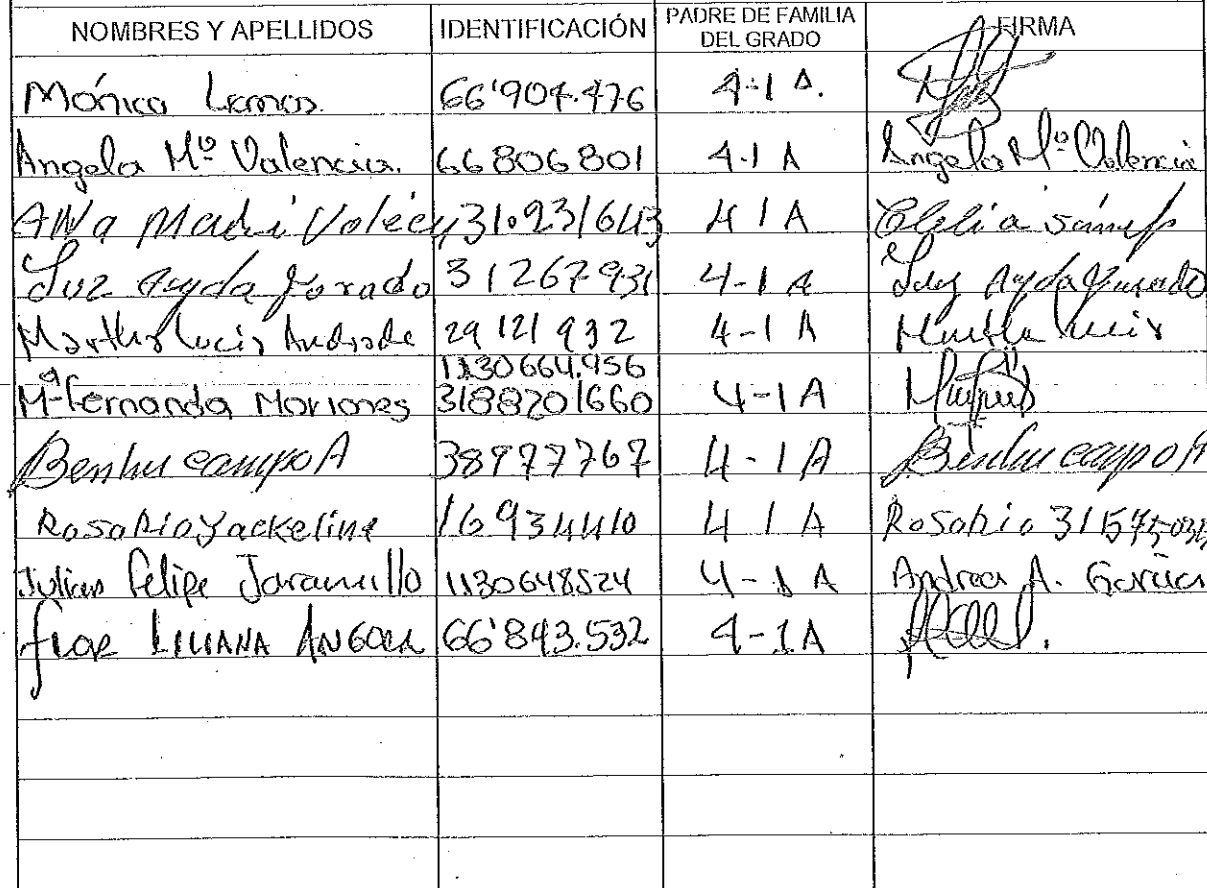 NOMBRES Y APELLIDOS IDENTIFICACIÓN PADRE DE FAMILIA DEL GRADO FIRMA
Mónica Lemos. 66'904.476 4-1 A.
Angela Mª Valencia. 66806801 4-1 A Angela Mª Valencia
31.231643 4 1 A Clelia
Luz Ayda Jurado 31267931 4-1 A Luz Ayda Jurado
Martha Lucia Andrade 29 121 932 4-1 A Martha Lucia
1130664.956
Mª Fernanda Moriones 3188201660 4-1 A
campo A 38977767 4-1 A campo A
Rosario Jackeline 16934410 4 1 A Rosario
Julian Felipe Jaramillo 1130648524 4-1 A Andrea A. Garcia
Flor LILIANA ANGOLA 66'843.532 4-1 A